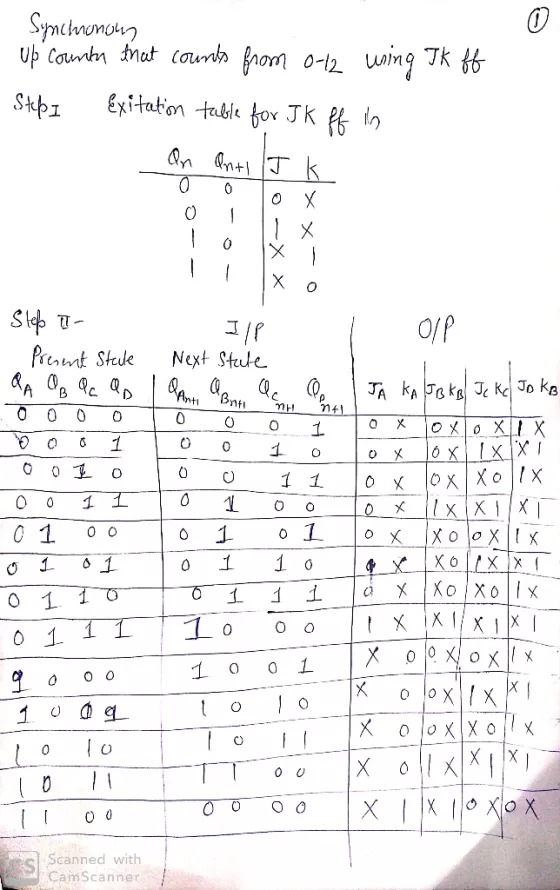 ①
Synchronous
Up Counter that counts from 0-12 using JK ff
Step I Exitation table for JK ff is
Qn Qn+1 J K
0 0 0 X
0 1 1 X
1 0 X 1
1 1 X 0
Step II- I/P O/P
Present State Next State
QA QB QC QD QAn+1 QBn+1 QCn+1 QDn+1 JA KA JB KB JC KC JD KB
0 0 0 0 0 0 0 1 0 X 0 X 0 X 1 X
0 0 0 1 0 0 1 0 0 X 0 X 1 X X 1
0 0 1 0 0 0 1 1 0 X 0 X X 0 1 X
0 0 1 1 0 1 0 0 0 X 1 X X 1 X 1
0 1 0 0 0 1 0 1 0 X X 0 0 X 1 X
0 1 0 1 0 1 1 0 X X 0 1 X X 1
0 1 1 0 0 1 1 1 0 X X 0 X 0 1 X
0 1 1 1 1 0 0 0 1 X X 1 X 1 X 1
1 0 0 0 1 0 0 1 X 0 0 X 0 X 1 X
1 0 0 1 1 0 1 0 X 0 0 X 1 X X 1
1 0 1 0 1 0 1 1 X 0 0 X X 0 1 X
1 0 1 1 1 1 0 0 X 0 1 X X 1 X 1
1 1 0 0 0 0 0 0 X 1 X 1 0 X 0 X
CS Scanned with
CamScanner